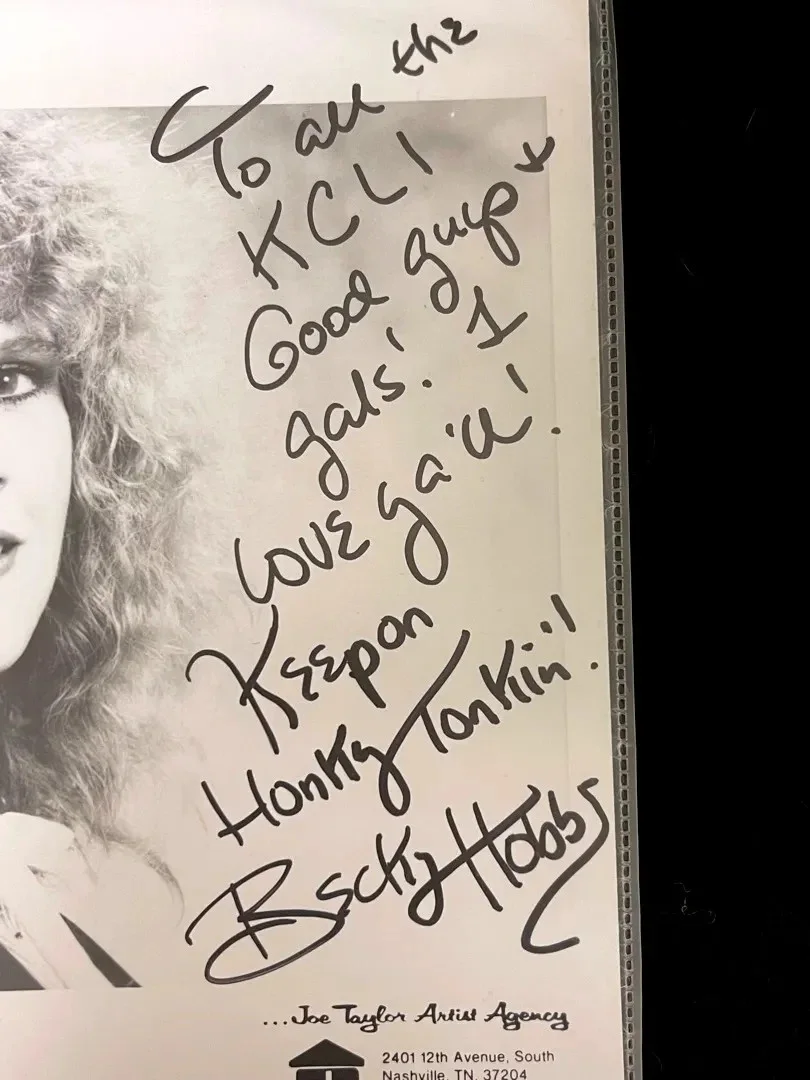 To all the
KCLI
Good guys +
gals! I
love ya'll!
Keep on
Honky Tonkin'!
Becky Hobbs
...Joe Taylor Artist Agency
2401 12th Avenue, South
Nashville, TN. 37204